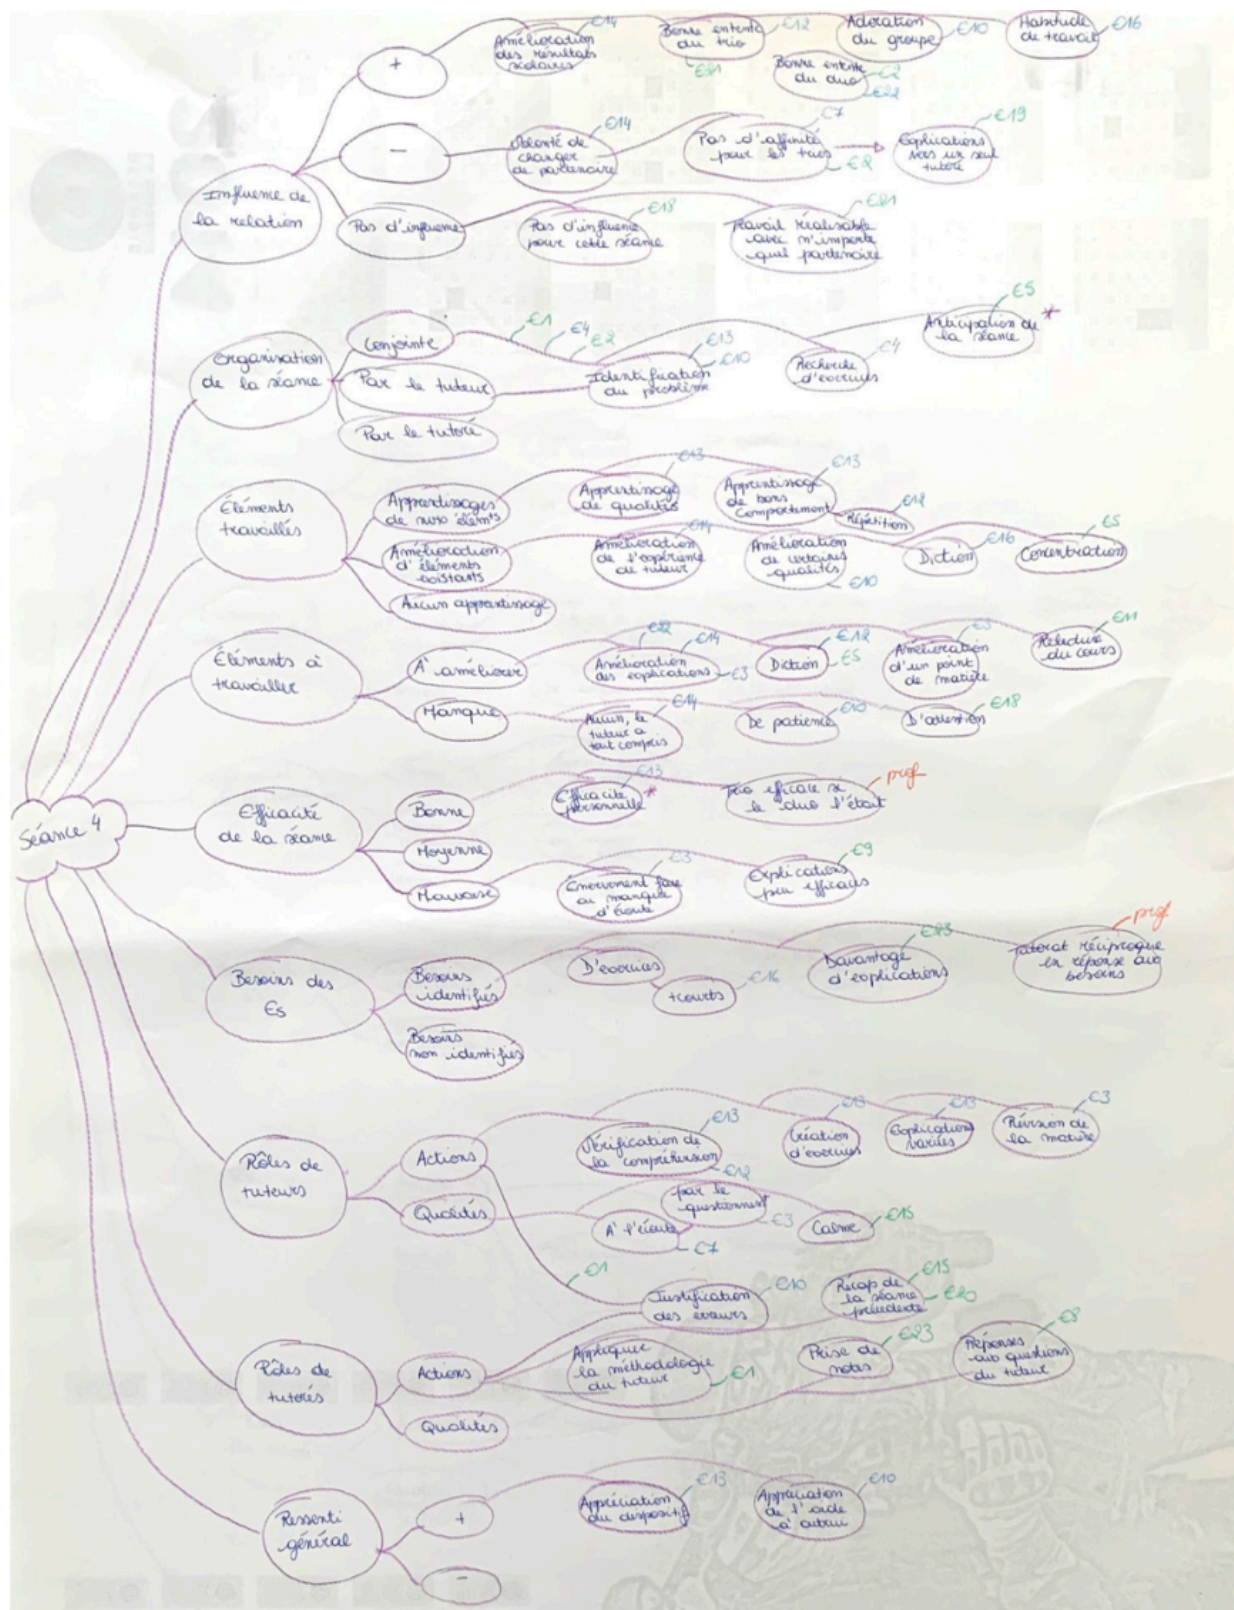 Séance 4
Influence de
la relation
+
€14
Amélioration
des résultats
scolaires
€12
Bonne entente
du trio
€21
€10
Adoration
du groupe
€16
Habitude
de travail
Bonne entente
du duo
€2
€22
-
€14
Volonté de
changer
de partenaire
€7
Pas d'affinité
pour les trios
€2
€19
Explications
vers un seul
tutoré
Pas d'influence
€18
Pas d'influence
pour cette séance
€21
Travail réalisable
avec n'importe
quel partenaire
Organisation
de la séance
Conjointe
€1
€4
€2
Par le tuteur
Par le tutoré
€13
€10
Identification
du problème
Recherche
d'exercices
€4
€5
Anticipation de *
la séance
Éléments
travaillés
Apprentissages
de nvx élémts
€13
Apprentissage
de qualités
€13
Apprentissage
de bons
comportement
€12
Répétition
Amélioration
d'éléments
existants
€14
Amélioration
de l'expérience
de tuteur
Amélioration
de certaines
qualités
€10
€16
Diction
€5
Concentration
Aucun apprentissage
Éléments à
travailler
À améliorer
€22
€14
Amélioration
des explications
€3
€12
Diction
€5
€3
Amélioration
d'un point
de matière
€11
Relecture
du cours
Manque
€14
Aucun, le
tuteur a
tout compris
€10
De patience
€18
D'attention
Efficacité
de la séance
Bonne
€13
Efficacité *
personnelle
prof
Trio efficace si
le duo l'était
Moyenne
Mauvaise
€3
Énervement face
au manque
d'écoute
€9
Explications
peu efficaces
Besoins des
€s
Besoins
identifiés
D'exercices
+ courts
€16
€23
Davantage
d'explications
prof
Tutorat réciproque
en réponse aux
besoins
Besoins
non identifiés
Rôles de
tuteurs
Actions
€13
Vérification de
la compréhension
€12
€13
Création
d'exercices
€13
Explications
variées
€3
Révision de
la matière
Qualités
À l'écoute
€7
par le
questionnemt
€3
€15
Calme
€1
€10
Justification
des erreurs
€15
Récap de
la séance
précédente
€20
Rôles de
tutorés
Actions
Appliquer
la méthodologie
du tuteur
€1
€23
Prise de
notes
€8
Réponses
aux questions
du tuteur
Qualités
Ressenti
général
+
€13
Appréciation
du dispositif
€10
Appréciation
de l'aide
à autrui
-